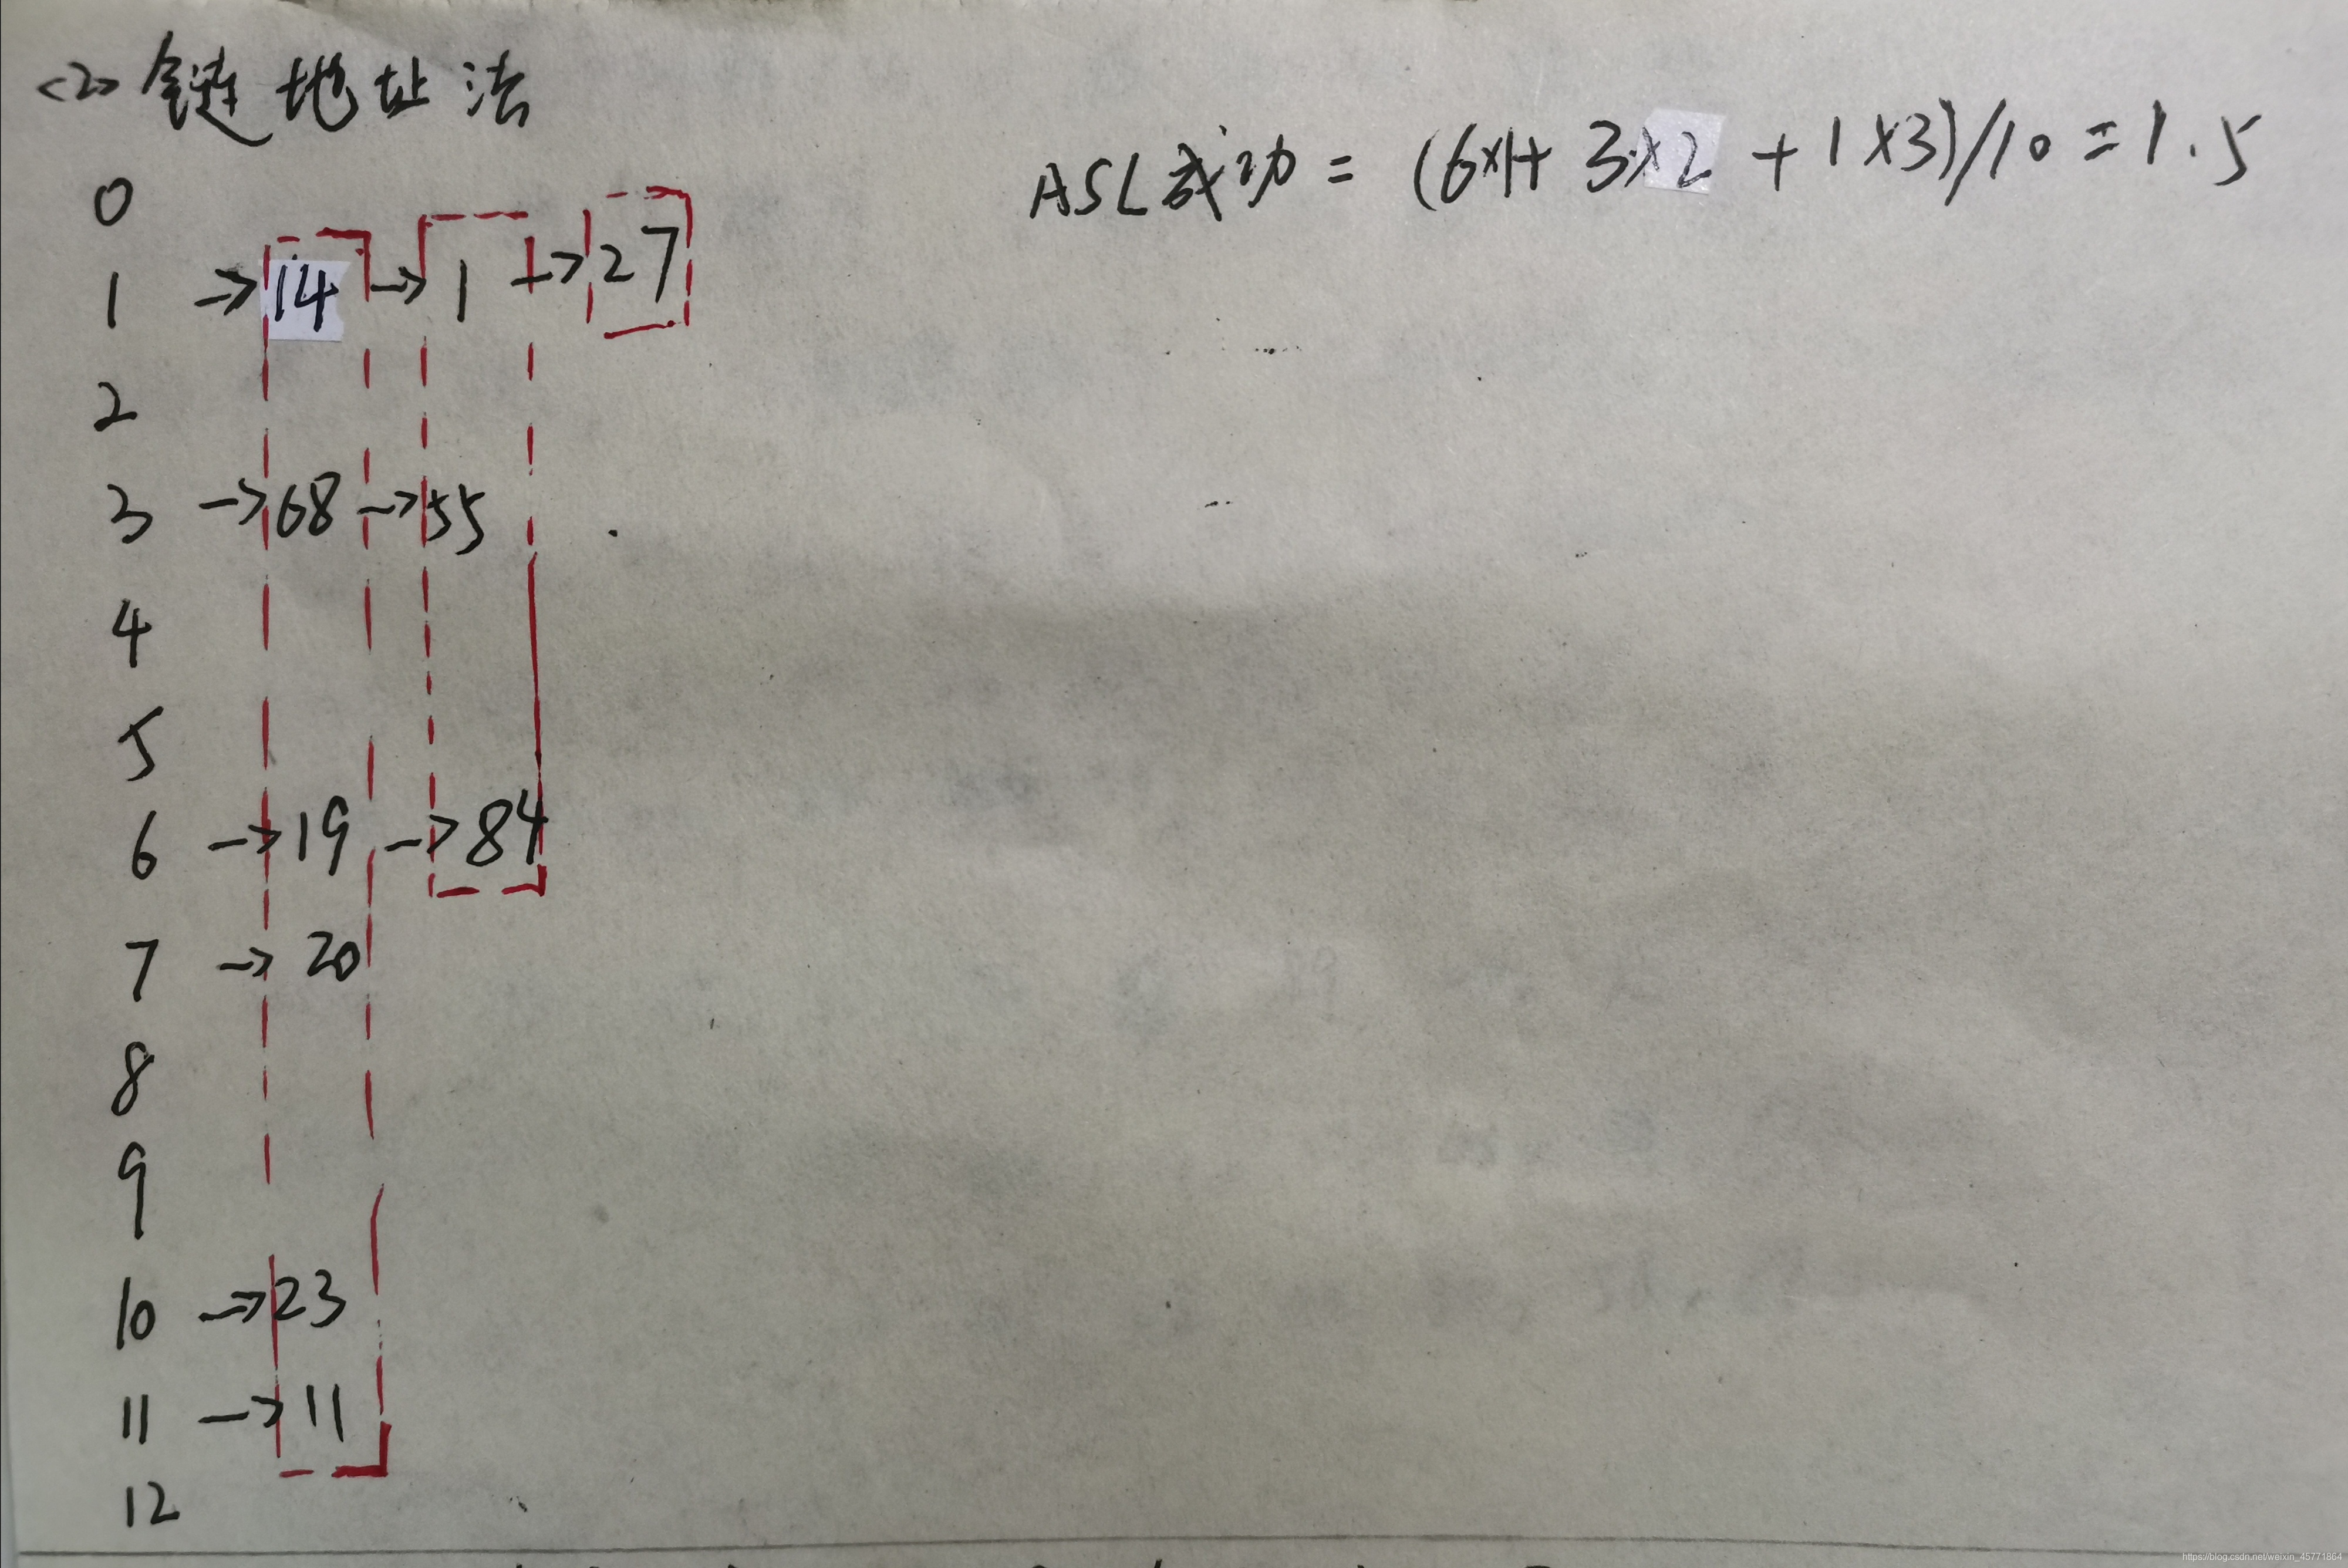 <2> 链地址法
ASL成功 = (6×1+ 3×2 + 1×3)/10 = 1.5
0
1 → 14 → 1 → 27
2
3 → 68 → 55
4
5
6 → 19 → 84
7 → 20
8
9
10 → 23
11 → 11
12
https://blog.csdn.net/weixin_45771864